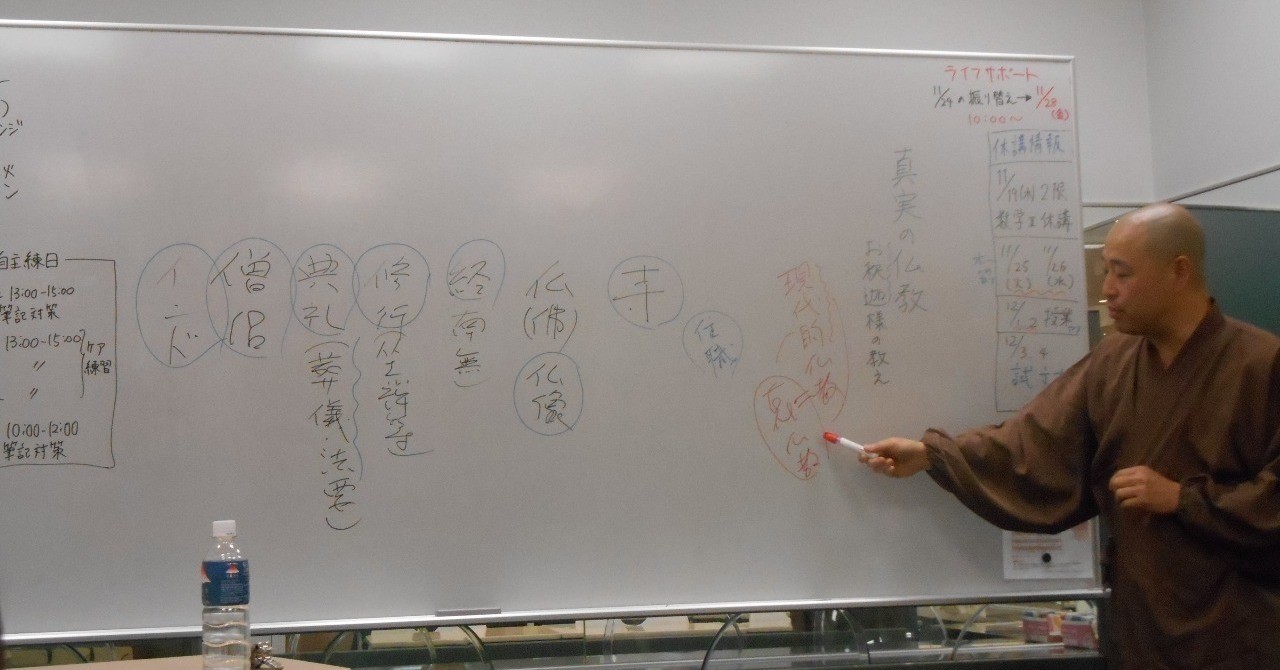 ライフサポート
11/24の振り替え→11/28
(金)
10:00～
休講情報
11/19(水)2限
数学Ⅱ休講
11/25 11/26
(火) (水)
12/1、2 授業
12/3、4
真実の仏教
お釈迦様の教え
現代的仏教
住職
寺
仏(佛)
仏像
経(南無)
修行
典礼(葬儀、法要)
僧侶
インド
自主練日
13:00-15:00
筆記対策
13:00-15:00
〃
〃
ケア
練習
10:00-12:00
筆記対策